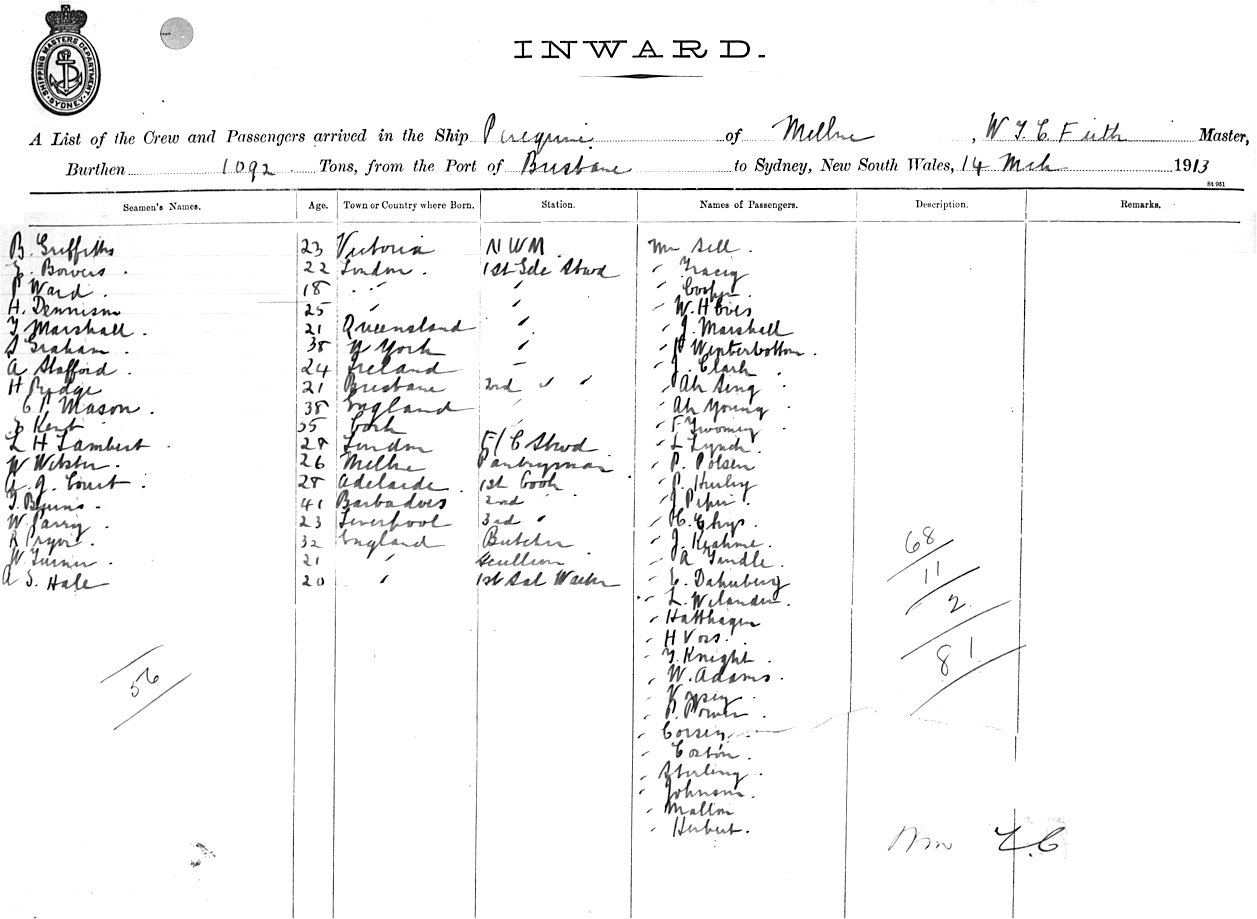 SHIPPING MASTERS DEPARTMENT
SYDNEY
INWARD.
A List of the Crew and Passengers arrived in the Ship Peregrine of Melbne, W T C Firth Master,
Burthen 1092 Tons, from the Port of Brisbane to Sydney, New South Wales, 14 Mch 1913
St 961
Seamen's Names. Age. Town or Country where Born. Station. Names of Passengers. Description. Remarks.
B. Griffiths 23 Victoria N W M Mr Sell.
Bowers. 22 London. 1st Sde Stwd " Tracey
P Ward. 18 " " " Cooper
H. Dennison 25 " " " W. H
T Marshall. 21 Queensland " " J. Marshall
S Graham. 38 N York " " Winterbottom.
A Stafford. 24 Ireland " J. Clark
H Pudge 21 Brisbane 2nd " " " Ah Sing
C P Mason. 38 England " Ah Young
Kent 35 Cork " F Twomey
L H Lambert. 28 London F/C Stwd " L Lynch.
W Webster. 26 Melbne Pantryman " P. Polsen
A. J. Court. 28 Adelaide. 1st Cook " P. Hurley
T. Burns. 41 Barbadoes 2nd " " J. Piper.
W. Parry. 23 Liverpool 3rd " "
R Pryor. 32 England Butcher " J.
W Turner. 21 " Scullion " A Tindle.
A S. Hale 20 " 1st Sal Waiter "
" L. Wilander.
" Hatthagen
" H Voss.
" T. Knight.
" W. Adams.
"
" P. Power
" Corsen
" Costin.
" Sterling.
" Johnson.
" Mallon
" Herbert.
68
11
2
81
56